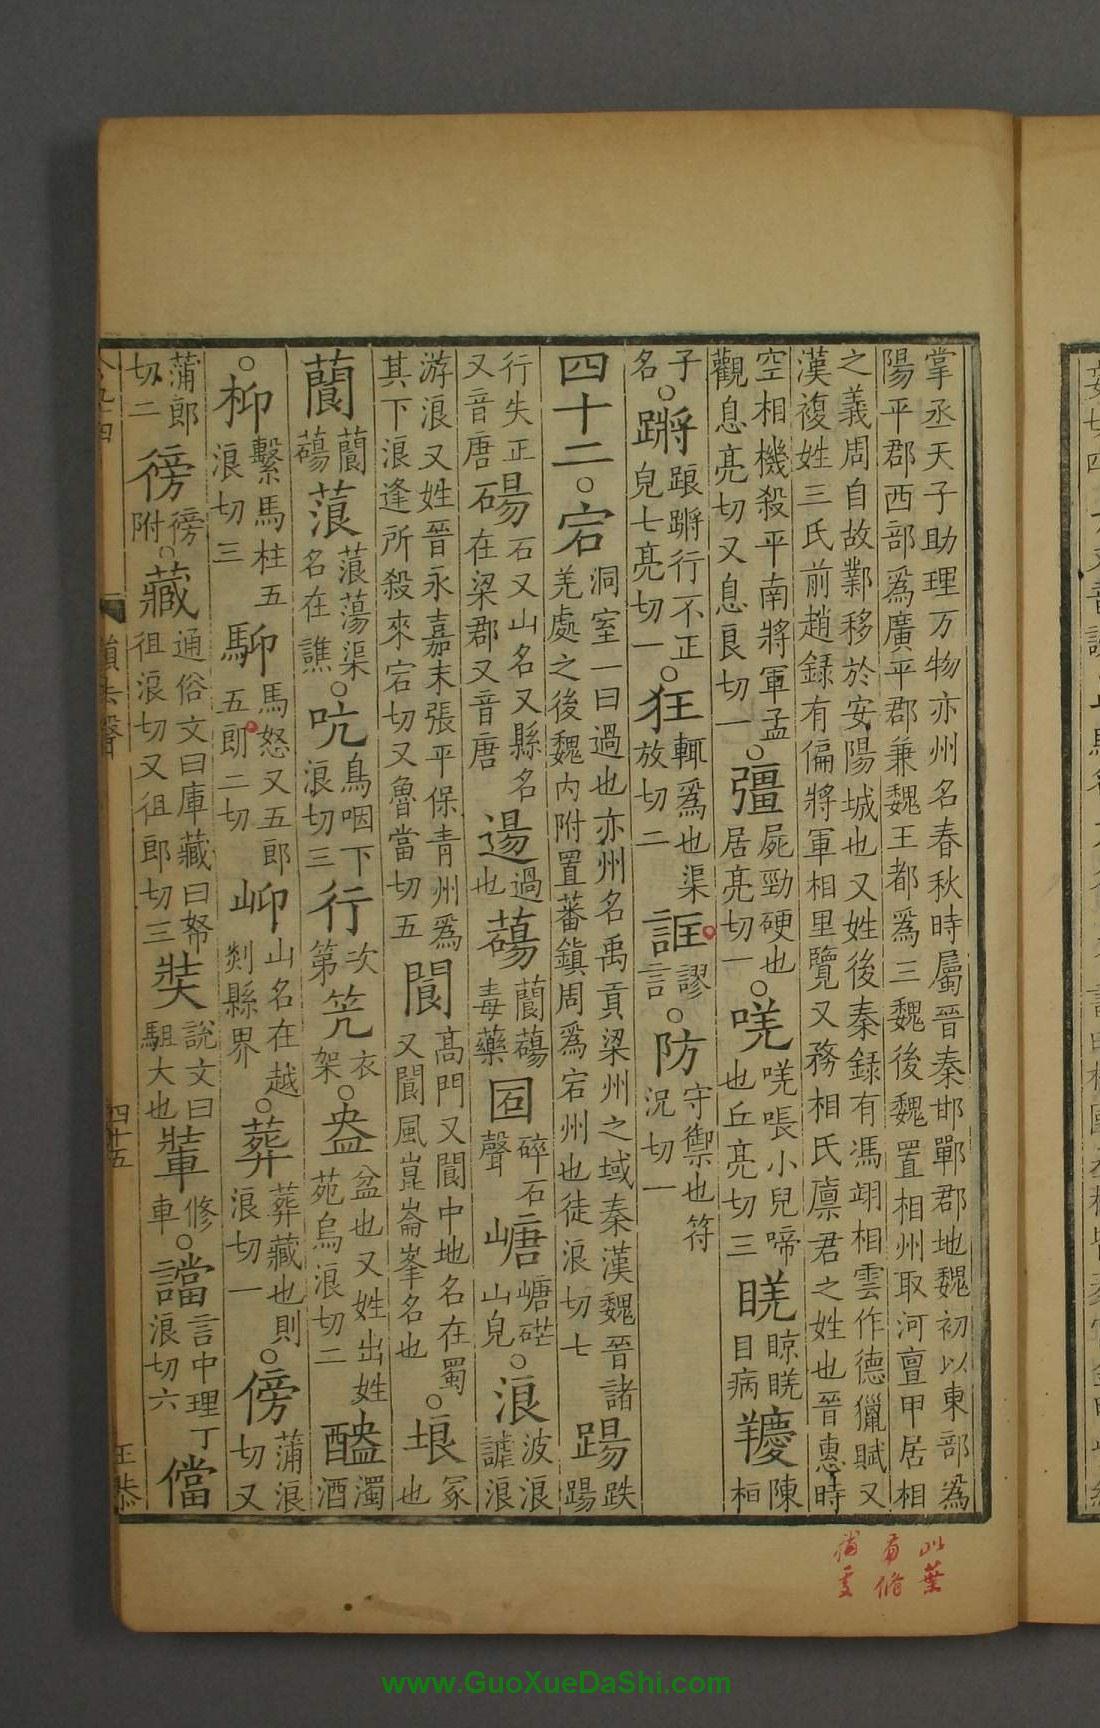 掌丞天子助理万物亦州名春秋時屬晉秦邯鄲郡地魏初以東部為
陽平郡西部為廣平郡兼魏王都為三魏後魏置相州取河亶甲居相
之義周自故鄴移於安陽城也又姓後秦録有馮翊相雲作德獵賦又
漢複姓三氏前趙録有偏將軍相里覽又務相氏廩君之姓也晉惠時
空相機殺平南將軍孟
觀息亮切又息良切一
○彊
屍勁硬也
居亮切一
○唴
唴哴小兒啼
也丘亮切三
𥇉
䁁𥇉
目病
䵮
陳
桓
子
名
○蹡
踉蹡行不正
皃七亮切一
○狂
輒為也渠
放切二
誆
謬
言
○防
守禦也符
況切一
四十二○宕
洞室一曰過也亦州名禹貢梁州之域秦漢魏晉諸
羌處之後魏内附置蕃鎮周為宕州也徒浪切七
踼
跌
踼
行失正
又音唐
碭
石又山名又縣名
在梁郡又音唐
逿
過
也
䕋
蘭䕋
毒藥
𡇈
碎石
聲
嵣
嵣㟐
山皃
○浪
波浪
謔浪
游浪又姓晉永嘉末張平保青州為
其下浪逢所殺來宕切又魯當切五
閬
高門又閬中地名在蜀
又閬風崑崙峯名也
埌
冢
也
蘭
蘭
䕋
蒗
蒗蕩渠
名在譙
○吭
鳥咽下
浪切三
行
次
第
笐
衣
架
○盎
盆也又姓出姓
苑烏浪切二
醠
濁
酒
○枊
繫馬柱五
浪切三
䭹
馬怒又五郎
五郎二切
岇
山名在越
剡縣界
○葬
葬藏也則
浪切一
○傍
蒲浪
切又
蒲郎
切二
徬
徬
附
○藏
通俗文曰庫藏曰帑
徂浪切又徂郎切三
奘
說文曰
駔大也
𨌴
修
車
○讜
言中理丁
浪切六
儅
四十五
王恭
此葉
有修
補
www.GuoXueDaShi.com